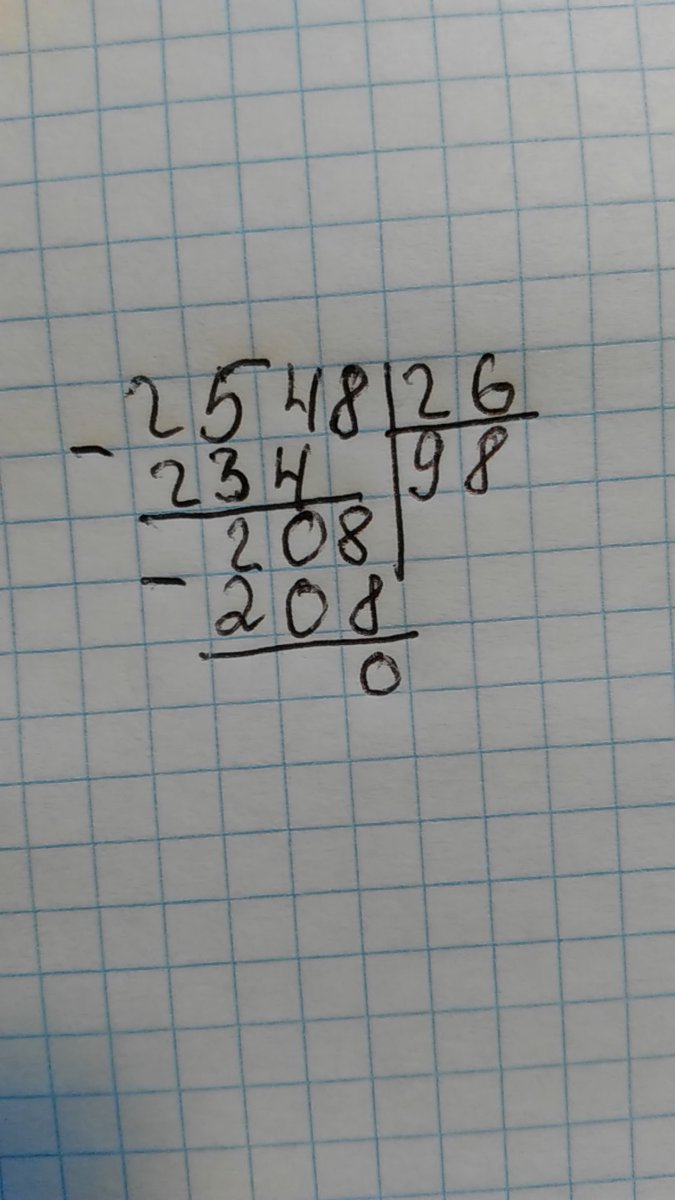 2548 26
- 234 98
208
- 208
0